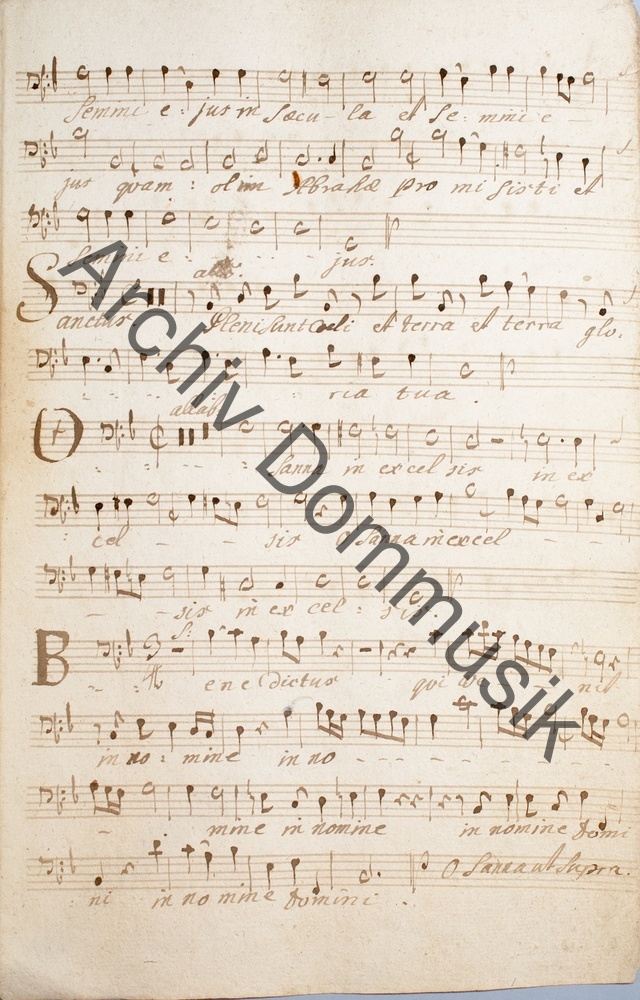 Semini e: jus in Sæcu-la et Se: mini e -
jus quam: olim Abrahæ pro mi sisti et
Semini e: jus.
Sanctus. Pleni sunt Coeli et terra et terra glo:
ria tua.
allab:
O Sanna in ex cel sis in ex
cel - - sis O Sanna in excel - -
- - sis in ex cel: sis
S:
B ene dictus qui ve nit
in no: mine in no - - - - - -
- mine in nomine in nomine Domi
ni in no mine Domini. O Sanna ut Supra.
Archiv Dommusik